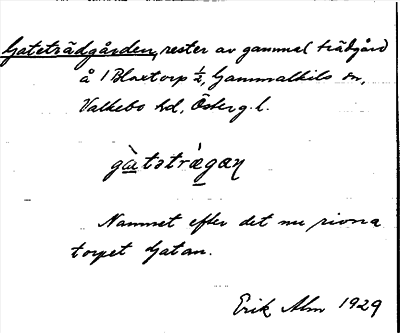 Gateträdgården, rester av gammal trädgård
å 1 Blaxtorp ½, Gammalkils sn,
Valkebo hd, Österg. l.
gàtstrægan
Namnet efter det nu rivna
torpet Gatan.
Erik Alm 1929